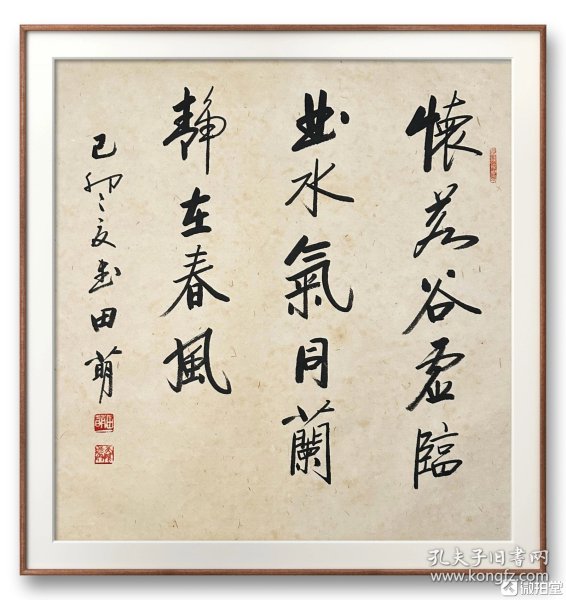 懷若谷虛臨
曲水氣同蘭
靜在春風
己卯之夏書田萌
孔夫子旧书网
www.kongfz.com
微拍堂